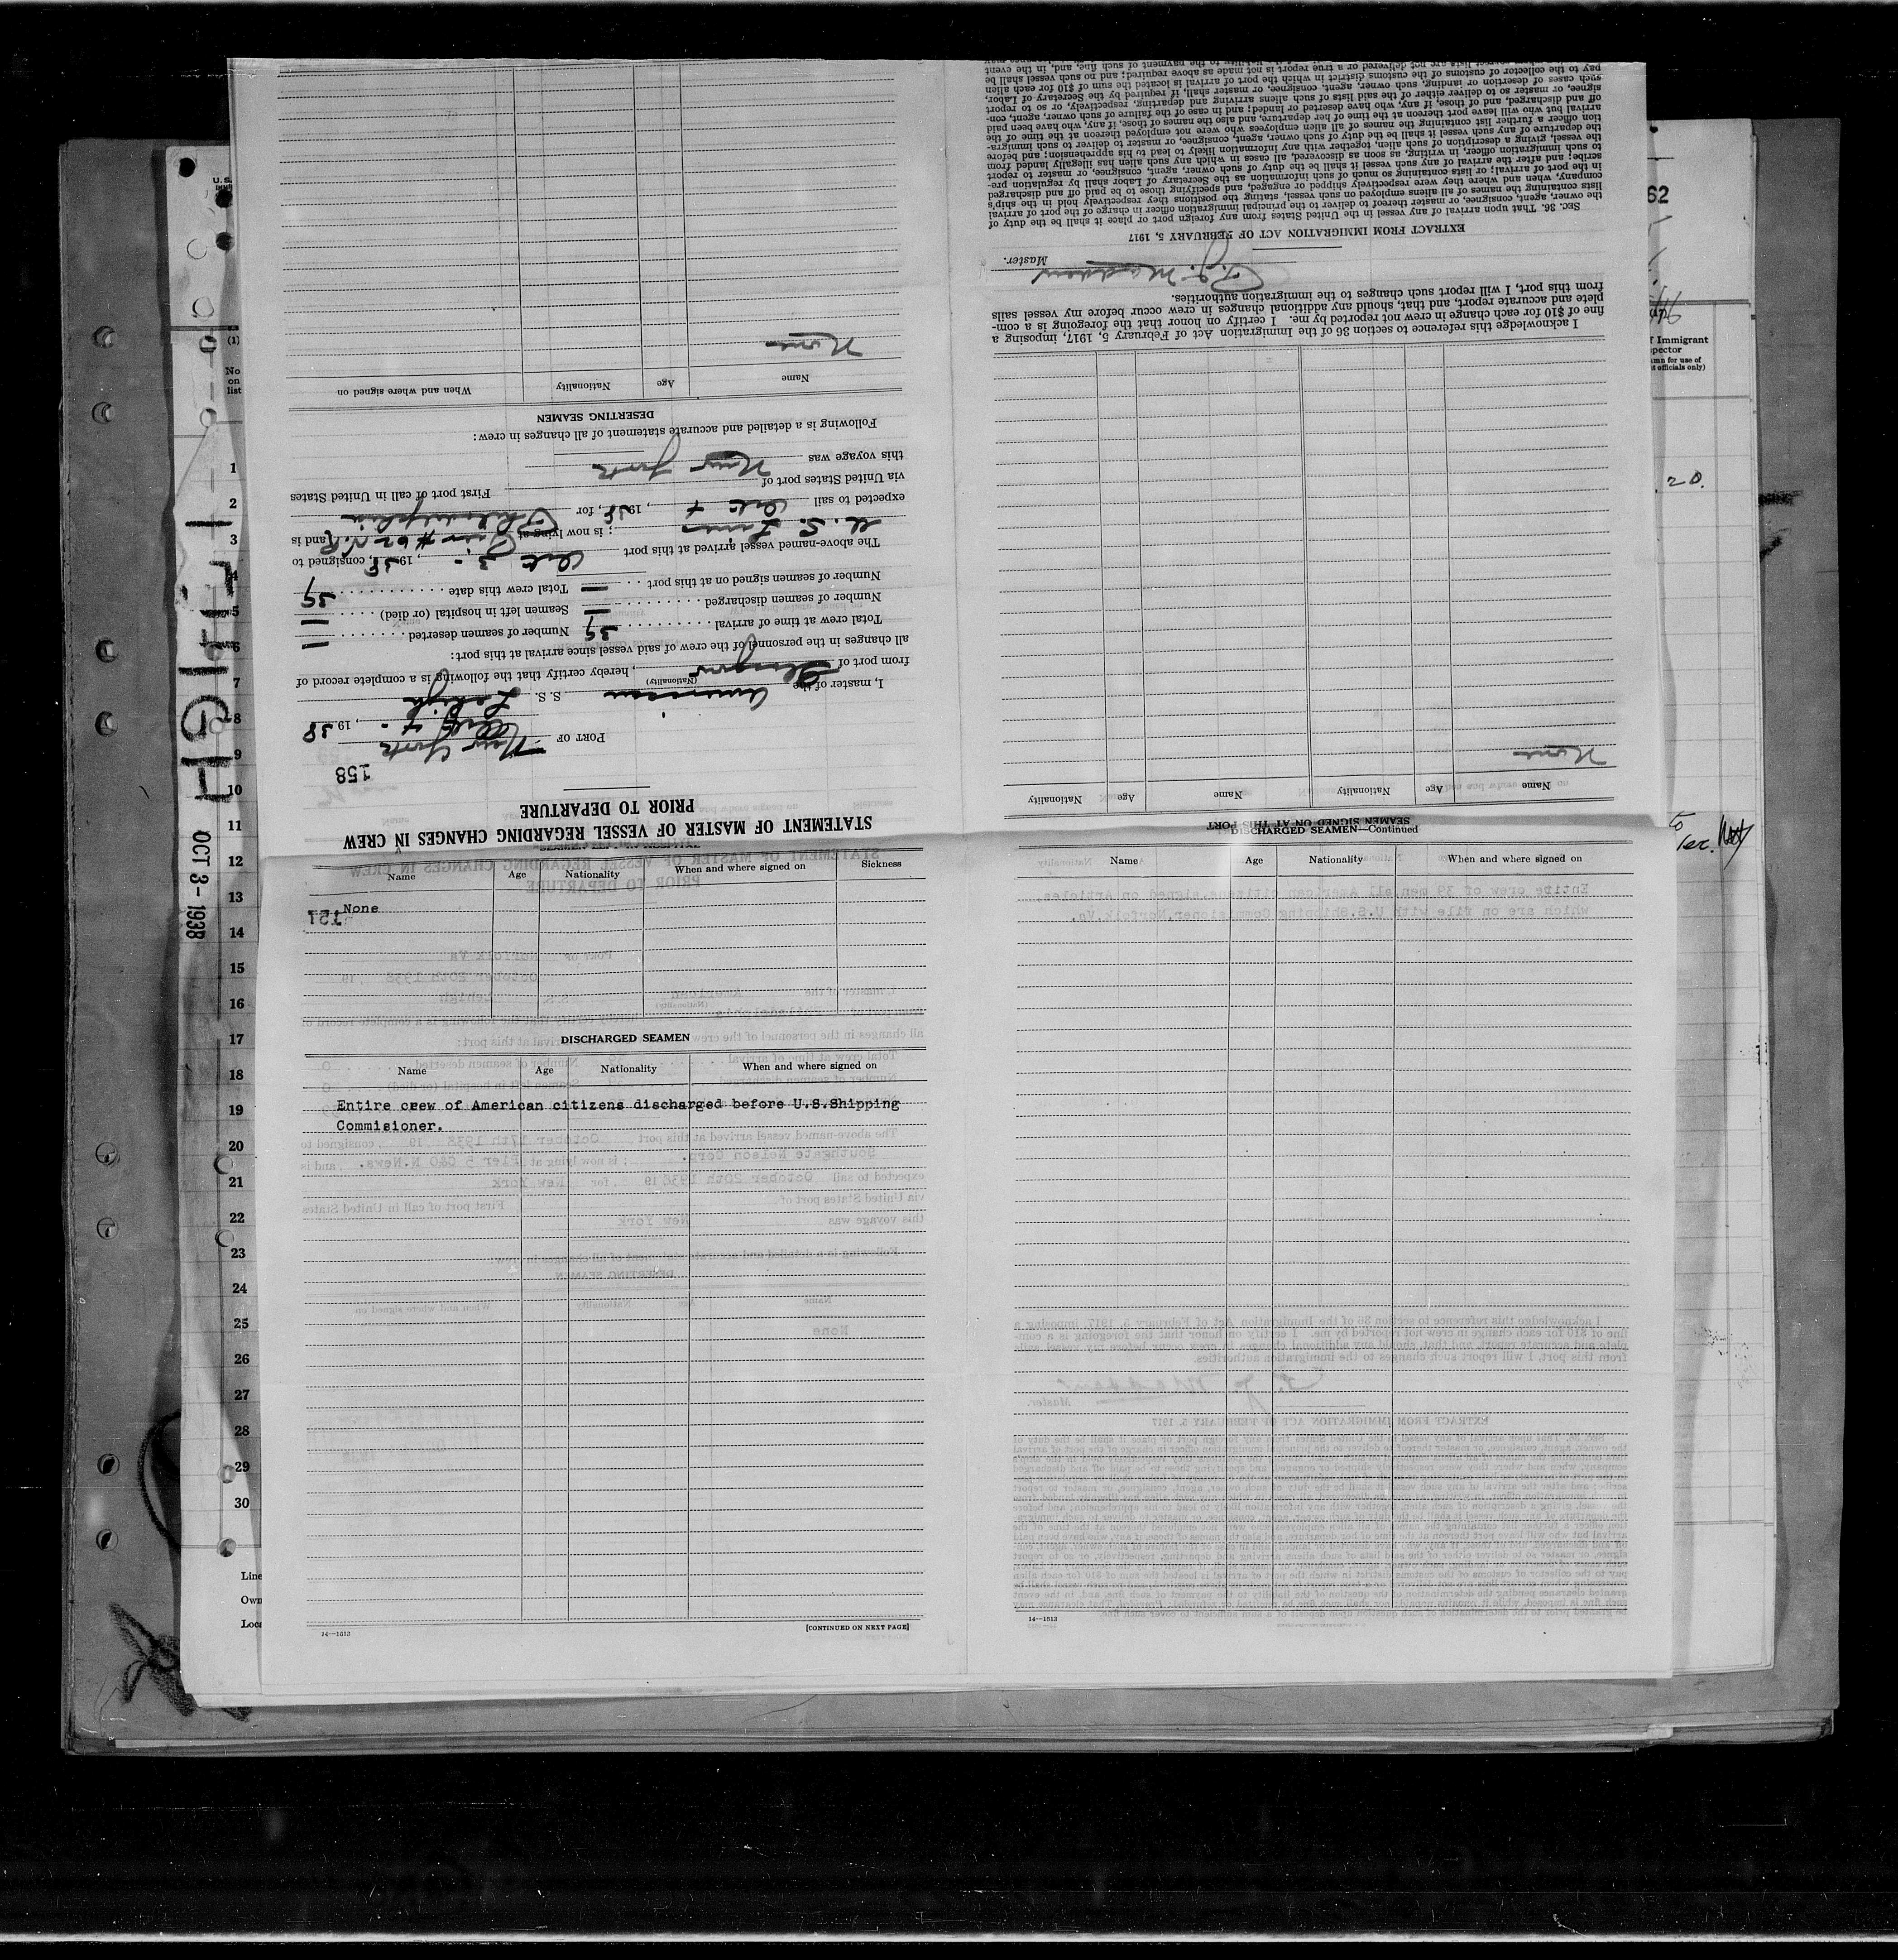 STATEMENT OF MASTER OF VESSEL REGARDING CHANGES IN CREW
PRIOR TO DEPARTURE
158
PORT OF New York
Oct 4 - , 1938
I, master of the American S. S. Lehigh
(Nationality)
from port of Glasgow , hereby certify that the following is a complete record of
all changes in the personnel of the crew of said vessel since arrival at this port:
Total crew at time of arrival 39 Number of seamen deserted —
Number of seamen discharged — Seamen left in hospital (or died) —
Number of seamen signed on at this port — Total crew this date 39
The above-named vessel arrived at this port Oct 3 - , 1938, consigned to
U. S. Lines ; is now lying at Pier #62 N.R. and is
expected to sail Oct 4 , 1938, for Philadelphia
via United States port of First port of call in United States
this voyage was New York
Following is a detailed and accurate statement of all changes in crew:
DESERTING SEAMEN
Name Age Nationality When and where signed on
None
SEAMEN SIGNED ON AT THIS PORT
Name Age Nationality Name Age Nationality
None
I acknowledge this reference to section 36 of the Immigration Act of February 5, 1917, imposing a
fine of $10 for each change in crew not reported by me. I certify on honor that the foregoing is a com-
plete and accurate report, and that, should any additional changes in crew occur before my vessel sails
from this port, I will report such changes to the immigration authorities.
Master.
EXTRACT FROM IMMIGRATION ACT OF FEBRUARY 5, 1917
SEC. 36. That upon arrival of any vessel in the United States from any foreign port or place it shall be the duty of
the owner, agent, consignee, or master thereof to deliver to the principal immigration officer in charge of the port of arrival
lists containing the names of all aliens employed on such vessel, stating the positions they respectively hold in the ship's
company, when and where they were respectively shipped or engaged, and specifying those to be paid off and discharged
in the port of arrival; or lists containing so much of such information as the Secretary of Labor shall by regulation pre-
scribe; and after the arrival of any such vessel it shall be the duty of such owner, agent, consignee, or master to report
to such immigration officer, in writing, as soon as discovered, all cases in which any such alien has illegally landed from
the vessel, giving a description of such alien, together with any information likely to lead to his apprehension; and before
the departure of any such vessel it shall be the duty of such owner, agent, consignee, or master to deliver to such immigra-
tion officer a further list containing the names of all alien employees who were not employed thereon at the time of the
arrival but who will leave port thereon at the time of her departure, and also the names of those, if any, who have been paid
off and discharged, and of those, if any, who have deserted or landed; and in case of the failure of such owner, agent, con-
signee, or master so to deliver either of the said lists of such aliens arriving and departing, respectively, or so to report
such cases of desertion or landing, such owner, agent, consignee, or master shall, if required by the Secretary of Labor,
pay to the collector of customs of the customs district in which the port of arrival is located the sum of $10 for each alien
Name Age Nationality When and where signed on Sickness
None
151
DISCHARGED SEAMEN
Name Age Nationality When and where signed on
Entire crew of American citizens discharged before U.S.Shipping
Commisioner.
14—1613
[CONTINUED ON NEXT PAGE]
DISCHARGED SEAMEN—Continued
Name Age Nationality When and where signed on
14—1613
LEHIGH
OCT 3-1938
U.S.
(1)
No
on
list
1
2
3
4
5
6
7
8
9
10
11
12
13
14
15
16
17
18
19
20
21
22
23
24
25
26
27
28
29
30
Line
Own
Loca
62
f Immigrant
pector
officials only)
20.
to